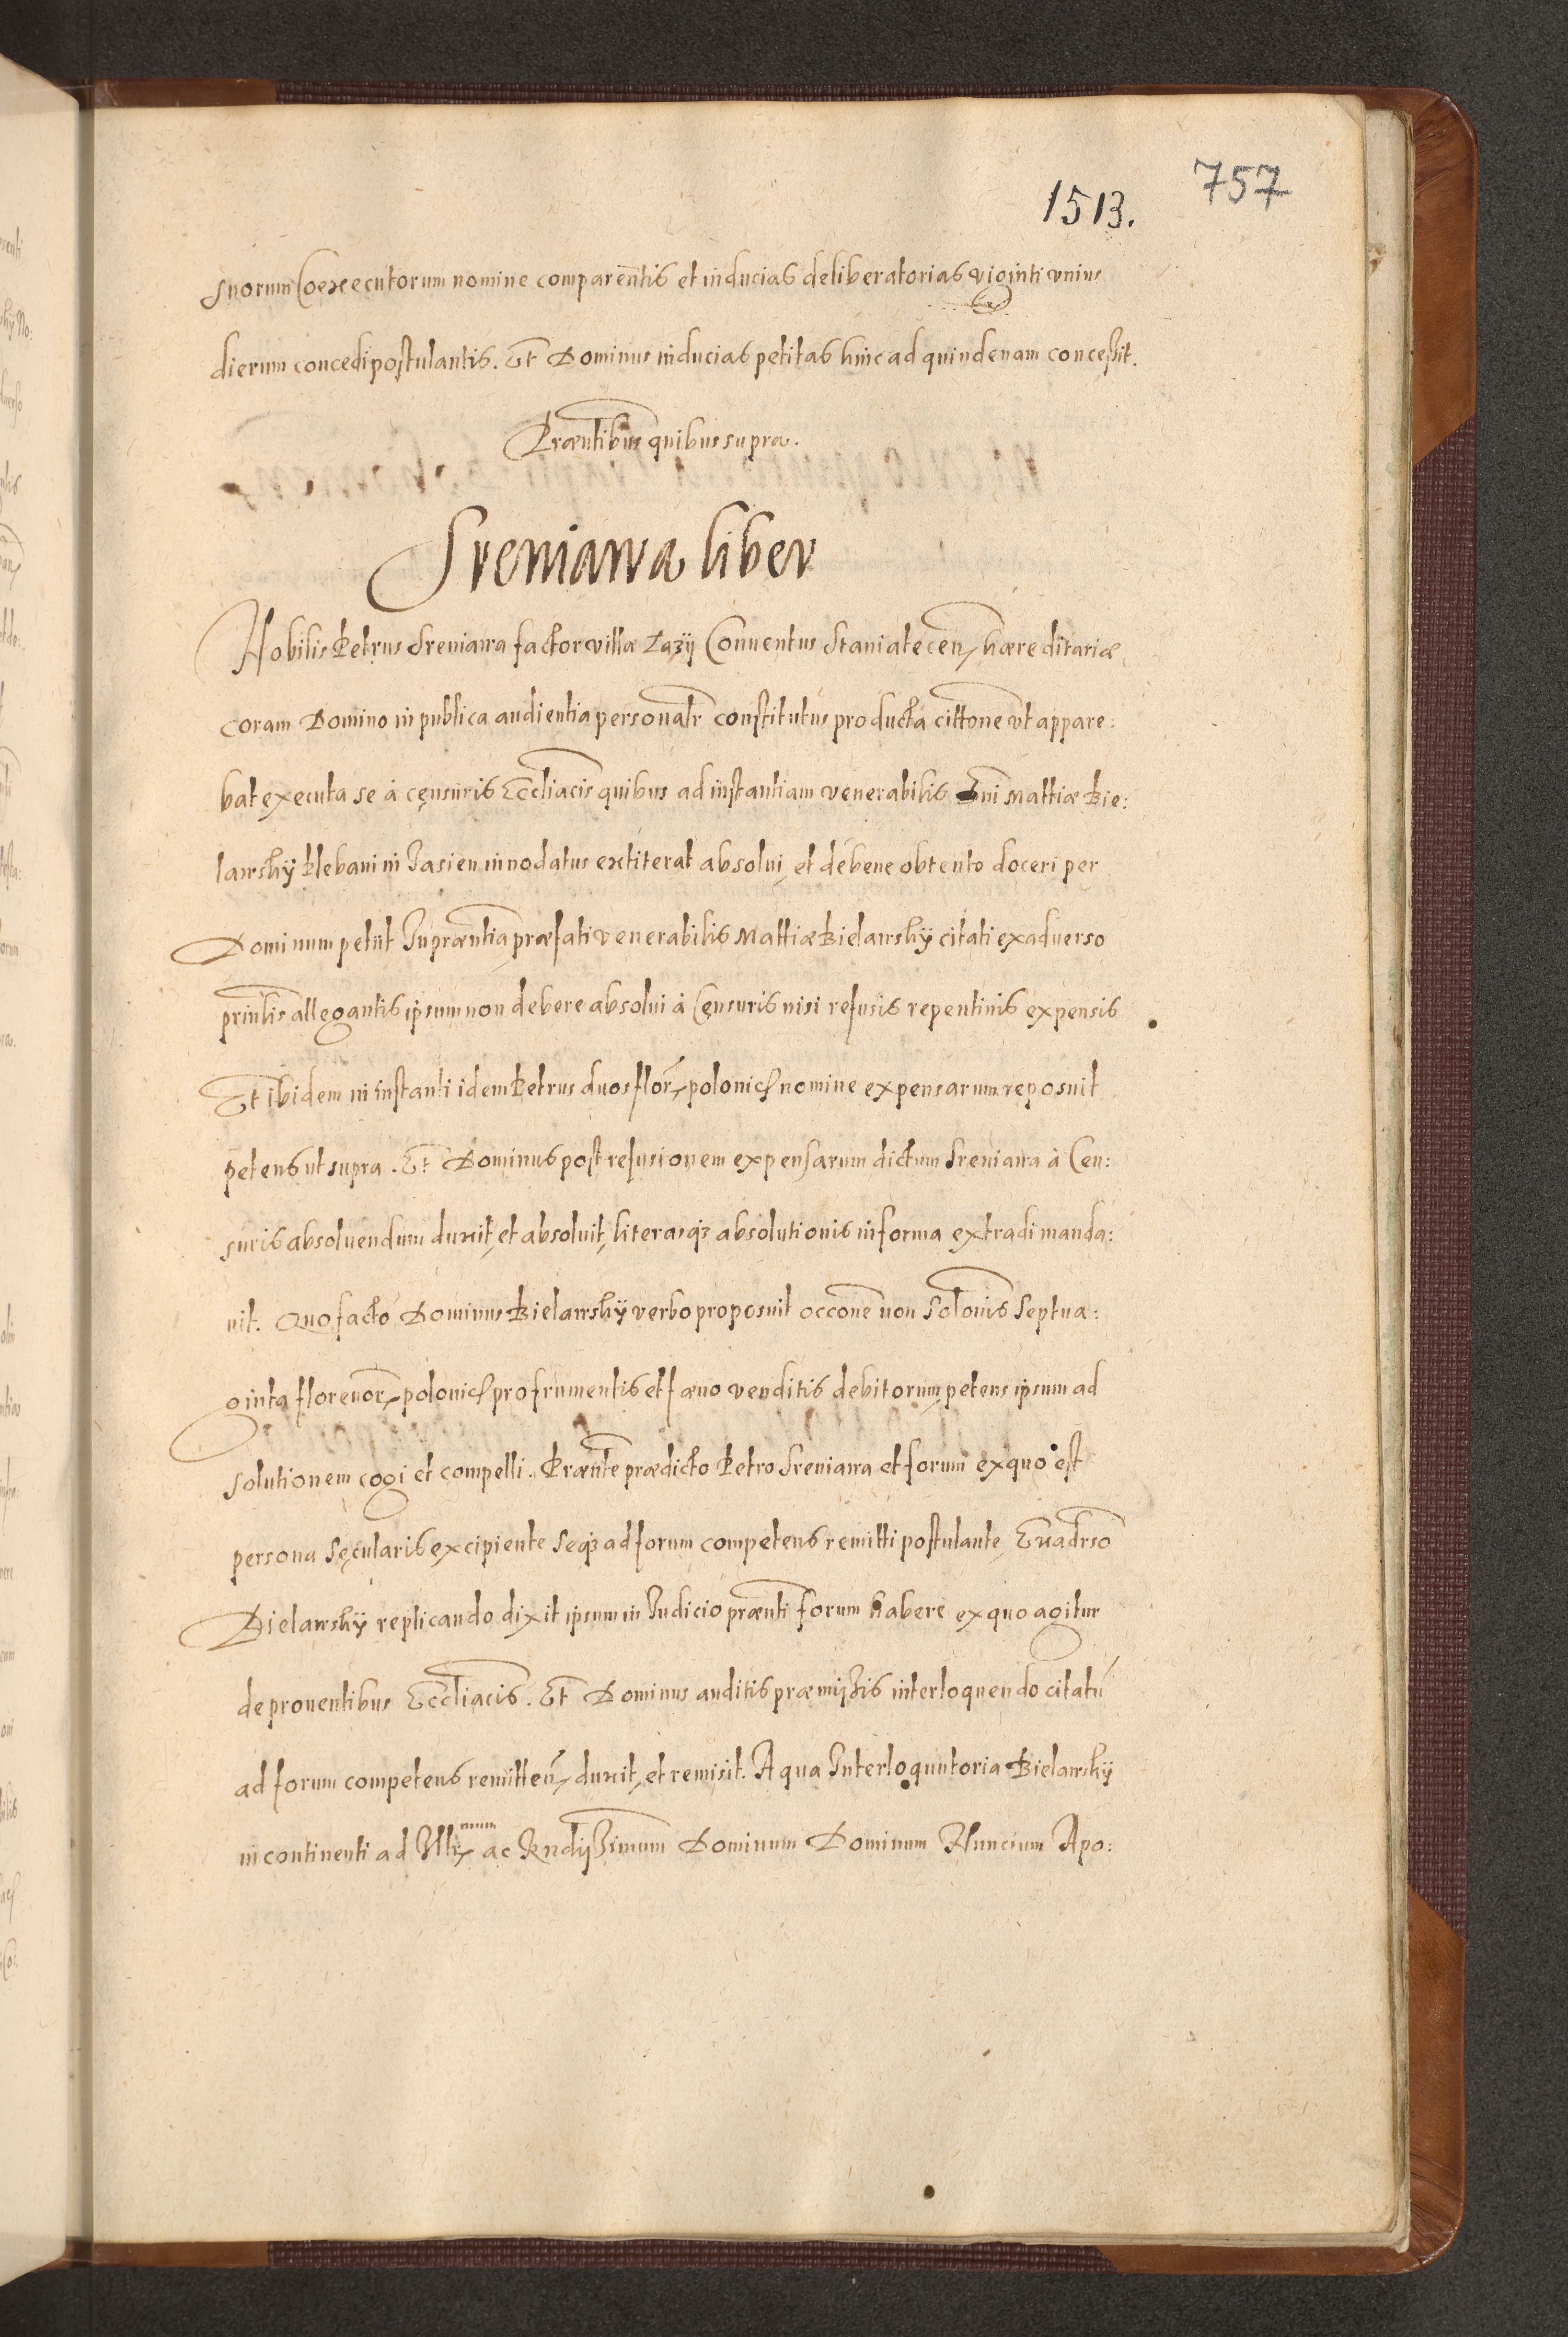 757
1513.
suorum Coexecutorum nomine comparentis et inducias deliberatorias viginti unius
dierum concedi postulantis. Et Dominus inducias petitas hinc ad quindenam concessit.
Præntibus quibus supra.
Sreniawa liber
Nobilis Petrus Sreniawa factor villæ Łazÿ Conuentus Staniatecen, hæreditariæ
coram Domino in publica audientia personalr constitutus producta cittone vt appare:
bat executa se à censuris Eccliacis quibus ad instantiam venerabilis Dni Mattiæ Bie:
lawskÿ Plebani in Jasien innodatus extiterat absolui, et de bene obtento doceri per
Dominum petiit In præntia præfati venerabilis Mattiæ Bielawskÿ citati ex aduerso
prinlis allegantis ipsum non debere absolui à Censuris nisi refusis repentinis expensis
Et ibidem in instanti idem Petrus duos flor, polonic nomine expensarum reposuit
petens ut supra. Et Dominus post refusionem expensarum dictum Sreniawa à Cen:
suris absoluendum duxit, et absoluit, literasq3 absolutionis in forma extradi manda:
uit. Quo facto Dominus Bielawskÿ verbo proposuit occone non solonis Septua:
ginta florenor, polonic pro frumentis et fæno venditis debitorum, petens ipsum ad
solutionem cogi et compelli. Prænte prædicto Petro Sreniawa et forum ex quo est
persona sęcularis excipiente seq3 ad forum competens remitti postulante, Exadrso
Bielawskÿ replicando dixit ipsum in Judicio prænti forum habere ex quo agitur
de prouentibus Eccliacis. Et Dominus auditis præmißis interloquendo citatũ
ad forum competens remitten, duxit, et remisit. A qua Interloquutoria Bielawskÿ
in continenti ad Illr,mum ac Rndißimum Dominum Dominum Nuncium Apo: